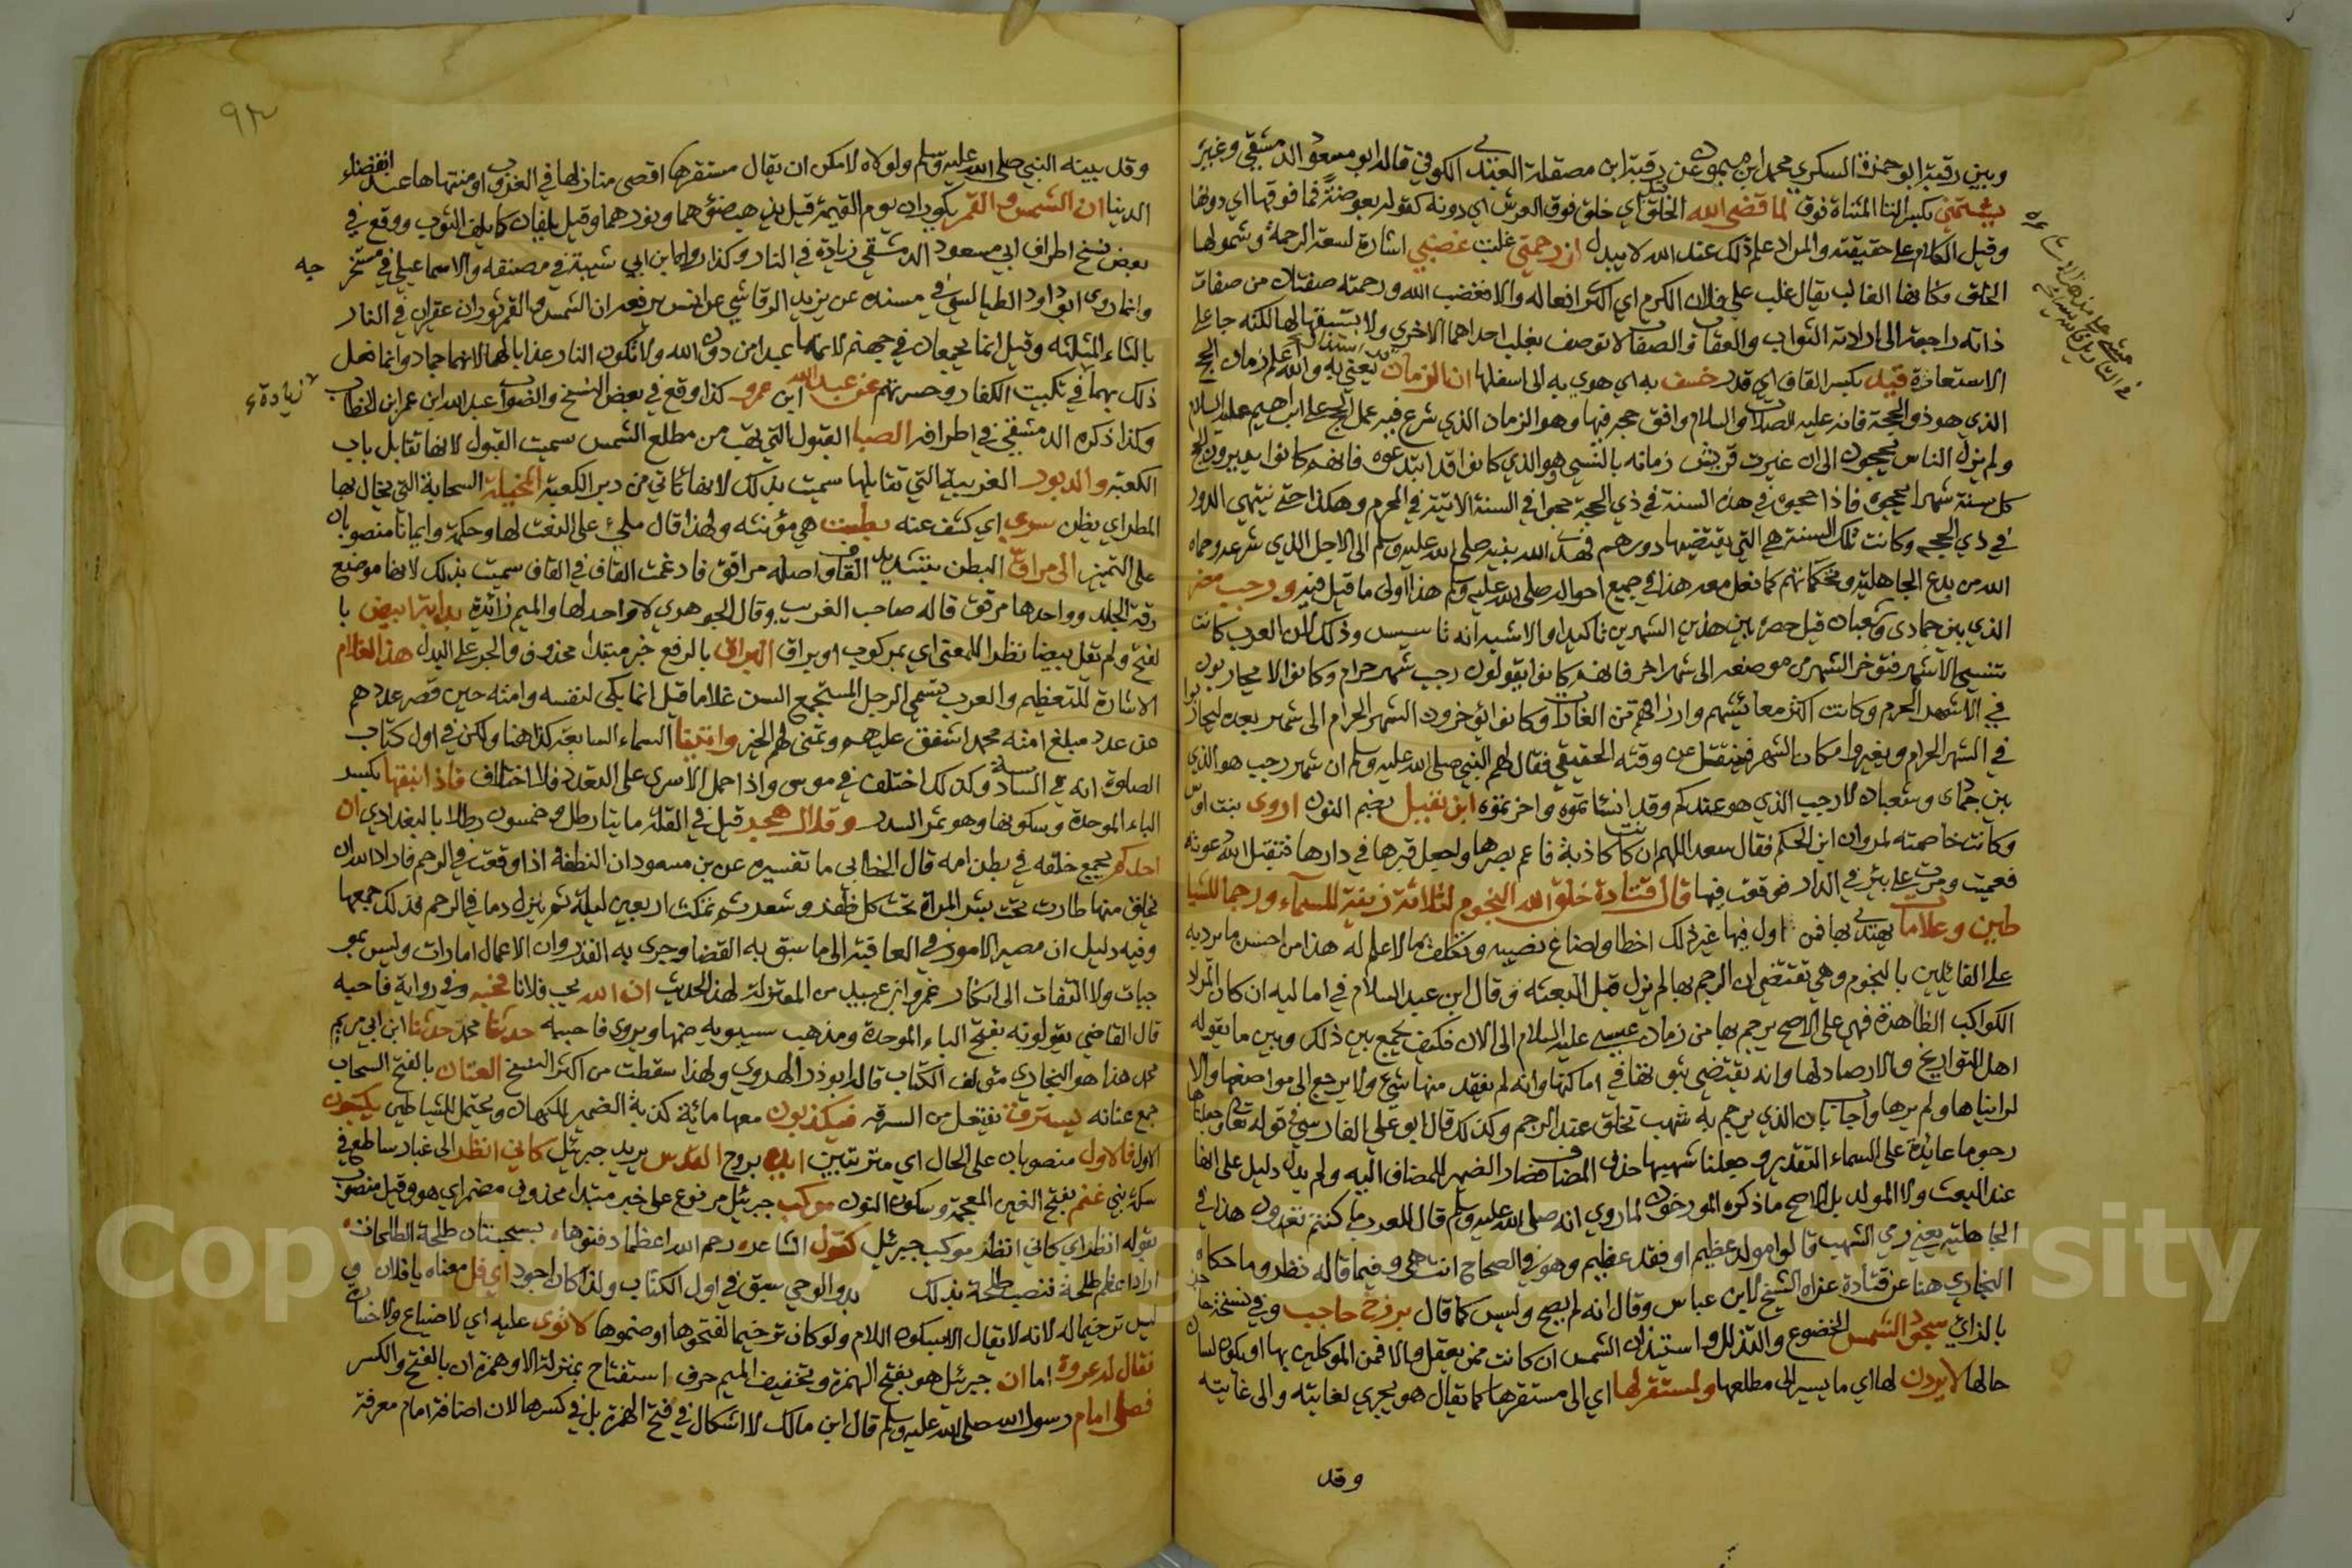 وبين رقبة ابو حمزة السكري محمد ابن ميمون عن رقبة ابن مصقلة العبدي الكوفي قاله ابو مسعود الدمشقي وغيره
يشتمني بكسر التاء المثناة فوق لما قضى الله الخلق اي خلق فوق العرش اي دونه كقوله بعوضة فما فوقها اي دونها
وقيل الكلام على حقيقته والمراد علم ذلك عند الله لا يبدل ان رحمتي غلبت غضبي اشارة لسعة الرحمة وشمولها
الخلق وكانها الغالب يقال غلب على فلان الكرم اي اكثر افعاله والا فغضب الله ورحمته صفتان من صفات
ذاته راجعة الى ارادته الثواب والعقاب والصفات لا توصف بغلب احداهما الاخرى ولا بسبقها لها لكنه جاء على
الاستعارة قيد بكسر القاف اي قدر خسف به اي هوي به الى اسفلها ان الزمان قد استدار يعني به والله اعلم زمان الحج
الذي هو ذو الحجة فانه عليه الصلاة والسلام وافق حجه فيها وهو الزمان الذي شرع فيه عمل الحج على ابراهيم عليه السلام
ولم يزل الناس يحجون الى ان غيرت قريش زمانه بالنسي هو الذي كانوا قد ابتدعوه فانهم كانوا يديرون الحج
كل سنة شهرا يحجوه فاذا حجوا في هذه السنة في ذي الحجة حجوا في السنة الاتية في المحرم وهكذا حتى ينتهي الدور
في ذي الحجة وكانت تلك السنة هي التي يقتضيها دورهم فهدى الله نبيه صلى الله عليه وسلم الى الاجل الذي شرعه وحماه
الله من بدع الجاهلية وتحكماتهم كما فعل معه هذا في جميع احواله صلى الله عليه وسلم هذا اولى ما قيل فيه ورجب مضر
الذي بين جمادى وشعبان قيل حصره بين هذين الشهرين تاكيدا والاشبه انه تاسيس وذلك لان العرب كانت
تنسي الاشهر فتوخر الشهر من موضعه الى شهر اخر فانهم كانوا يقولون رجب شهر حرام وكانوا لا يحاربون
في الاشهر الحرم وكانت اكثر معائشهم وارزاقهم من الغارات وكانوا يؤخرون الشهر الحرام الى شهر بعده ليحاربوا
في الشهر الحرام ويغيروا مكان الشهر فينتقل عن وقته الحقيقي فقال لهم النبي صلى الله عليه وسلم ان شهر رجب هو الذي
بين جمادى وشعبان لا رجب الذي هو عندكم وقد انسأتموه واخرتموه ابن نفيل بضم النون اروى بنت اوس
وكانت خاصمته لمروان ابن الحكم فقال سعد اللهم ان كانت كاذبة فاعم بصرها واجعل قبرها في دارها فتقبل الله دعوته
فعميت ومرت على بئر في الدار فوقعت فيها قال قتادة خلق الله النجوم لثلاثة زينة للسماء ورجما للشيا
طين وعلامات يهتدى بها فمن اول فيها غير ذلك اخطا واضاع نصيبه وتكلف ما لا علم له هذا من احسن ما يرد به
على القائلين بالنجوم وهي تقتضي ان الرجم بها لم يزل قبل البعثة وقال ابن عبد السلام في اماليه ان كان المراد
الكواكب الظاهرة فهي على الاصح يرجم بها من زمان عيسى عليه السلام الى الان فكيف يجمع بين ذلك وبين ما يقوله
اهل التواريخ والارصاد لها وانه يقتضي ثبوتها في اماكنها وانه لم يفقد منها شيء ولا يرجع الى مواضعها والا
لراينا ها ولم نرها واجاب بان الذي يرجم به شهب تخلق عند الرجم وكذلك قال ابو علي الفارسي في قوله تعالى وجعلناها
رجوما عايدة على السماء التقدير وجعلنا شهبها حذف المضاف فصار الضمير للمضاف اليه ولم يدل دليل على انها
عند البعث ولا المولد بل الاصح ما ذكره المورخون لما روي انه صلى الله عليه وسلم قال للعرب ما كنتم تعدون هذا في
الجاهلية يعني رمي الشهب قالوا مولد عظيم او فقد عظيم وهو في الصحاح انتهى وفيما قاله نظر وما حكاه
البخاري هنا عن قتادة عزاه الشيخ لابن عباس وقال انه لم يصح وليس كما قال برزخ حاجب وفي نسخة
بالزاي سجود الشمس الخضوع والتذلل واستيذان الشمس ان كانت ممن يعقل والا فمن الموكلين بها او يكون لسان
حالها لا يردن لها اي ما يسير الى مطلعها ولمستقر لها اي الى مستقرها كما يقال هو يجري لغايته والى غايته
وقد
٩٣
وقد بينه النبي صلى الله عليه وسلم ولولاه لامكن ان يقال مستقرها اقصى منازلها في الغروب او منتهاها عند انقضاء
الدنيا ان الشمس والقمر يكوران يوم القيمة قيل يذهب ضوؤهما ونورهما وقيل يلفان كما يلف الثوب ووقع في
بعض نسخ اطراف ابي مسعود الدمشقي زيادة في النار وكذا رواها ابن ابي شيبة في مصنفه والاسماعيلي في مستخر جه
وانما روى ابو داود الطيالسي في مسنده عن يزيد الرقاشي عن انس يرفعه ان الشمس والقمر ثوران عقيران في النار
بالثاء المثلثه وقيل انما يجمعان في جهنم لانهما عبدا من دون الله ولا تكون النار عذابا لهما لانهما جماد وانما فعل
ذلك بهما في تبكيت الكفار وحسرتهم عن عبد الله ابن عمرو كذا وقع في بعض النسخ والصواب عبد الله ابن عمر ابن الخطاب زيادة
وكذا ذكره الدمشقي في اطرافه الصبا القبول التي تهب من مطلع الشمس سميت القبول لانها تقابل باب
الكعبة والدبور الغربية التي تقابلها سميت بذلك لانها تاتي من دبر الكعبة المخيلة السحابة التي يخال بها
المطر اي يظن سري اي كشف عنه بطست هي مؤنثه ولهذا قال ملئ على النعت لها وحكمة وايمانا منصوبان
على التمييز الى مراق البطن بتشديد القاف واصله مراقق فادغمت القاف في القاف سميت بذلك لانها موضع
رقة الجلد وواحدها مرقق قاله صاحب الغريب وقال الجوهري لا واحد لها والميم زائدة بدابة ابيض با
لفتح ولم يقل بيضا نظرا للمعنى اي بمركوب او براق البراق بالرفع خبر مبتدا محذوف والجر على البدل هذا الغلام
الاشارة للتعظيم والعرب تسمي الرجل المستجمع السن غلاما قيل انما بكى لنفسه وامته حين قصر عددهم
عن عدد مبلغ امة محمد اشفق عليهم وتمنى لهم الخير واتينا السماء السابعة كذا هنا ولكن في اول كتاب
الصلوة انه في السادسة وكذلك اختلف في موسى واذا حمل الاسرى على التعدد فلا اختلاف فاذا نبقها بكسر
الباء الموحدة وسكونها وهو ثمر السدر وقلال هجر قيل في القلة ماتيا رطل وخمسون رطلا بالبغدادي ان
احدكم يجمع خلقه في بطن امه قال الخطابي ما تفسيره عن بن مسعود ان النطفة اذا وقعت في الرحم فاراد الله ان
يخلق منها طارت تحت بشر المراة تحت كل ظفر وشعر ثم تمكث اربعين ليلة ثم ينزل دما في الرحم فذلك جمعها
وفيه دليل ان مصير الامور في العاقبة الى ما سبق به القضا وجرى به القدر وان الاعمال امارات وليس بمو
جبات ولا التفات الى انكار عمرو ابن عبيد من المعتزلة لهذا الحديث ان الله يحب فلانا فحبه وفي رواية فاحبه
قال القاضي يقولونه بفتح الباء الموحدة ومذهب سيبويه ضمها ويروى فاحببه حدثنا محمد حدثنا ابن ابي مريم
محمد هذا هو البخاري مؤلف الكتاب قاله ابو ذر الهروي ولهذا سقطت من اكثر النسخ العنان بالفتح السحاب
جمع عنانه فيسترق تفتعل من السرقه فيكذبون معها مائة كذبة الضمير للكهان ويحتمل للشياطين يكتبون
الاول فالاول منصوبان على الحال اي مترتبين ايده بروح القدس يريد جبرئيل كاني انظر الى غبار ساطع في
سكة بني غنم بفتح الغين المعجمة وسكون النون موكب جبرئيل مرفوع على خبر مبتدا محذوف مضمر اي هو وقيل منصوب
بقوله انظر اي كاني انظر موكب جبرئيل كقول الشاعر رحم الله اعظما دفنوها بسجستان طلحة الطلحات
اراد اعظم طلحة فنصب طلحة بذلك بدو الوحي سبق في اول الكتاب ولذا كان اجود اي فل معناه يا فلان و
ليس ترخيما له لانه لا يقال الا بسكون اللام ولو كان ترخيما لفتحوها او ضموها لا توى عليه اي لا ضياع ولا خسارة
فقال له عروة اما ان جبرئيل هو بفتح الهمزة وتخفيف الميم حرف استفتاح بمنزلة الا وهمزة ان بالفتح والكسر
فصلى امام رسول الله صلى الله عليه وسلم قال ابن مالك لا اشكال في فتح الهمزة بل في كسرها لان اضافة امام معرفة
Copyright © King Saud University